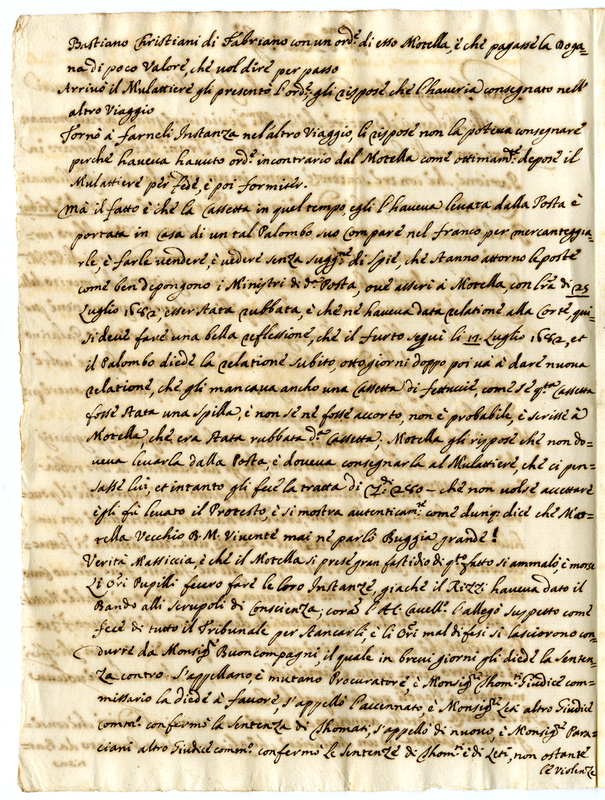 Bastiano Christiani di Fabriano con un ord.e di esso Motella, è che pagasse la Doga-
na di poco valore, che vol dire per passo
Arrivò il Mulattiere gli presentò l'ord.e gli rispose che l'haveria consegnato nell'
altro Viaggio
Tornò à farneli Instanza nel'altro Viaggio, li rispose non la poteva consegnare
perche haveva havuto ord.e incontrario dal Motella come ottimam.te depose il
Mulattiere per fede, è poi formiter.
Mà il fatto è che la Cassetta in quel tempo, egli l'haveva levata dalla Posta è
portata in Casa di un tal Palombo suo Compare nel franco per mercanteggia-
rle, è farle vendere, è vedere senza sugg.ne di Spie, che stanno attorno le poste
come ben depongono i Ministri di d.a Posta, ove asserì à Motella, con l'ra di 25
Luglio 1682, esser stata rubbata, è che ne haveva data relatione alla Corte, qui-
si deve fare una bella reflessione, che il furto seguì li 17 Luglio 1682, et
il Palombo diede la relatione subito, otto giorni doppo poi và à dare nuova
relatione, che gli mancava ancho una Cassetta di fettuccie, come se q.ta Cassetta
fosse stata una spilla, è non se ne fosse accorto, non è probabile, è scrisse è
Motella, che era stata rubbata d.a Cassetta, Motella gli rispose che non do-
veva levarla dalla Posta, è doveva consegnarla al Mulattiere, che ci pen-
sasse lui, et intanto gli fece la tratta di 250 - che non volse accettare
è gli fù levato il Protesto, è si mostra autenticam.te come dunq. dice che Mo-
tella Vecchio B. M. Vivente mai ne parlò Buggia grande!
Verità Massiccia, è che il Motella si prese gran fastidio di q.to fatto si ammalò, è morse
Li Pupilli fecero fare le loro Instanze, giache il Rizzi haveva dato il
Bando alli scrupoli di Conscienza; l'allegò suspetto come
fece di tutto il Tribunale per stancarli, è li mal difesi si lasciorono con-
durre da Monsig.r Buoncompagni, il quale in brevi giorni gli diede la Senten-
za contro. s'appellano, è mutano Procuratore, è Monsig.r Thom.ti Giudice com-
missario la diede à favore, s'appellò l'accennato è Monsig.r Leti altro Giudice
comm. confermò la Sentenza di Thomati, s'appellò di nuovo, è Monsig.r Para-
ciani altro Giudice comm. confermò le sentenze di Thom.ti è di Leti, non ostante
le Violenze